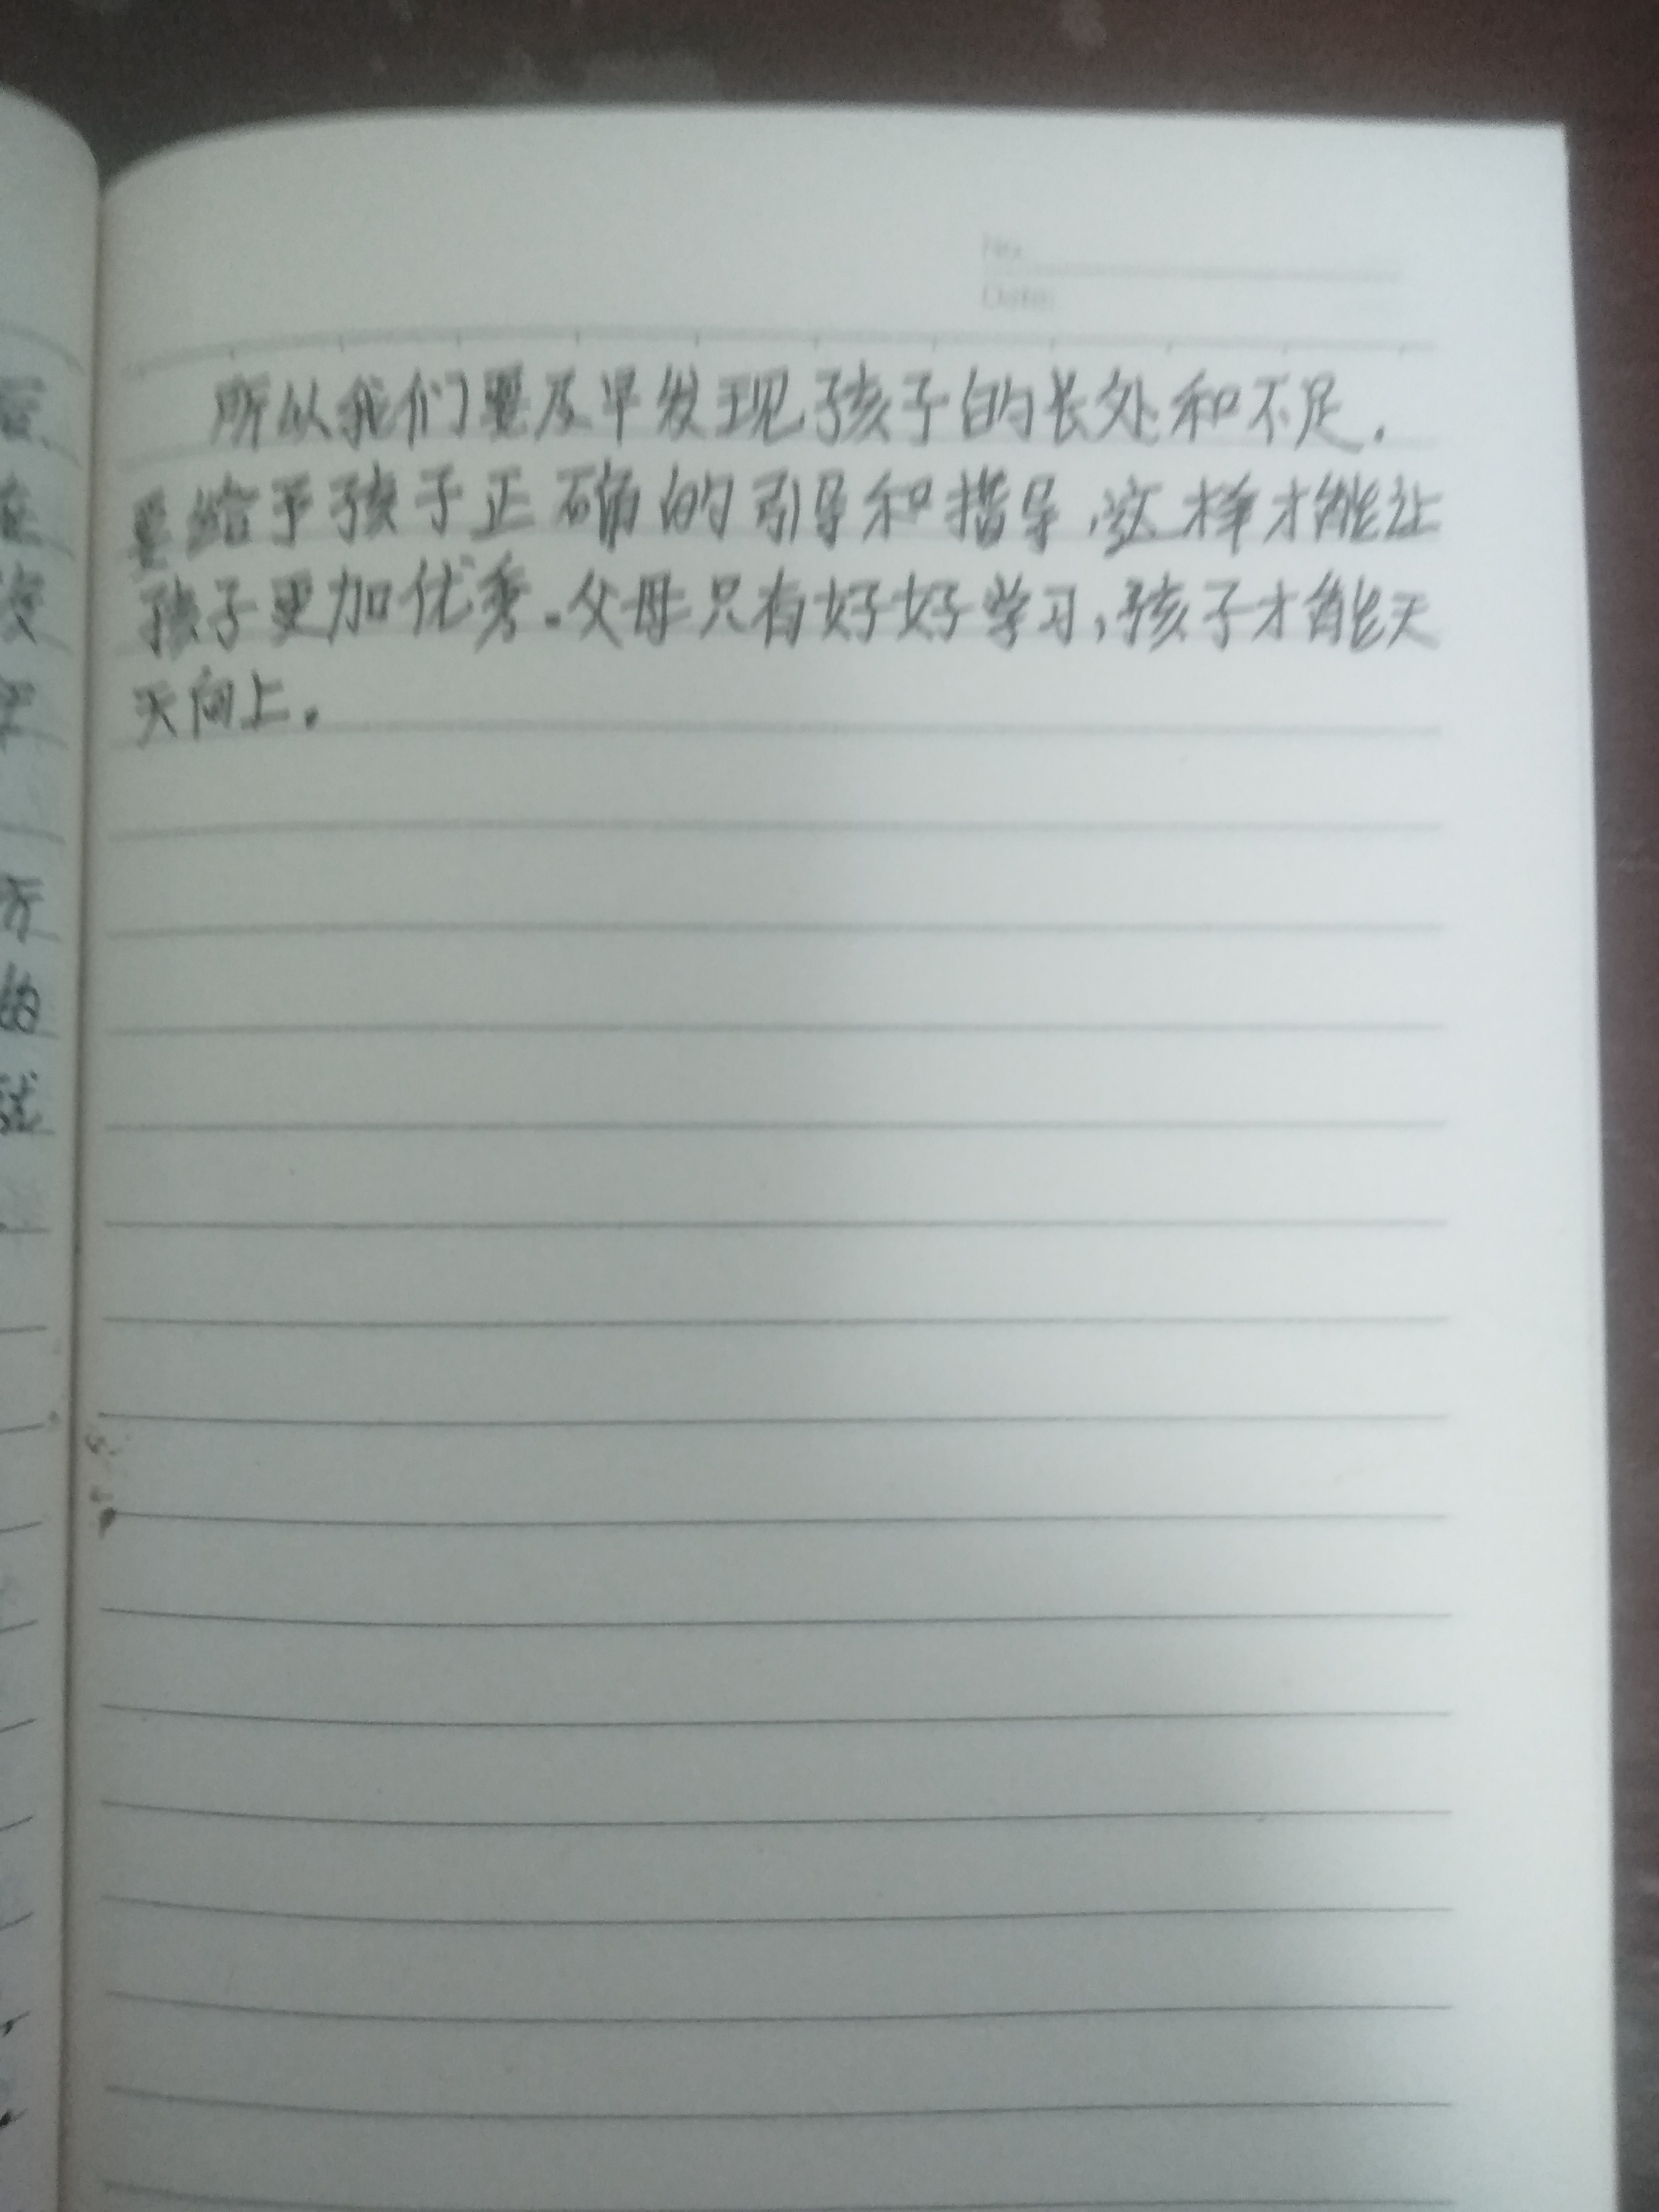 No.
Date:
所以我们要及早发现孩子的长处和不足.
要给予孩子正确的引导和指导,这样才能让
孩子更加优秀.父母只有好好学习,孩子才能天
天向上.
的
试